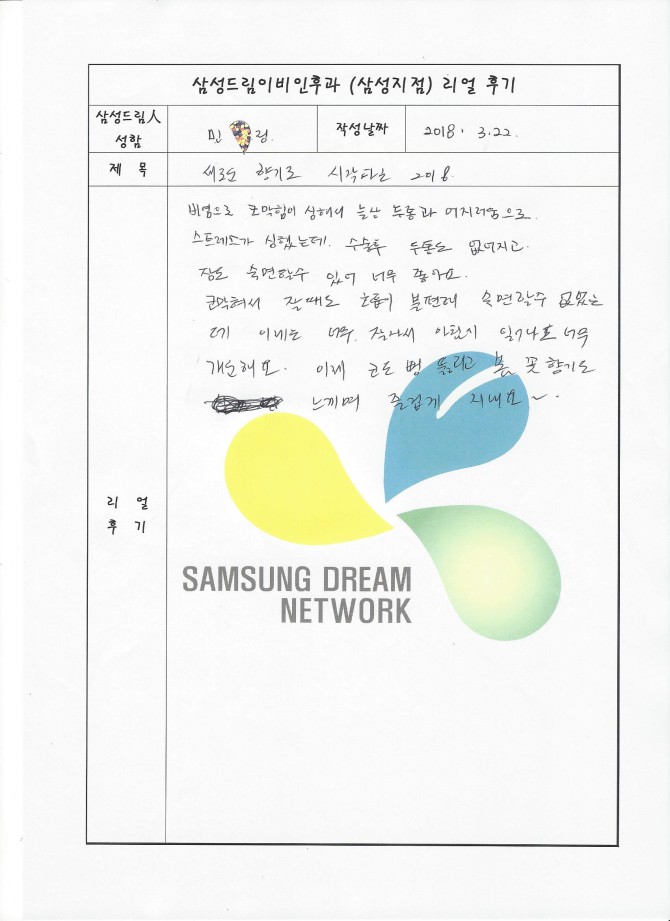 삼성드림이비인후과 (삼성지점) 리얼 후기
삼성드림人
성함
민 림.
작성날짜
2018. 3.22.
제 목
새로운 향기로 시작하는 2018.
비염으로 코막힘이 심해서 늘상 두통과 어지러움으로
스트레스가 심했는데. 수술후 두통도 없어지고.
잠도 숙면할수 있어 너무 좋아요.
코막혀서 잘때도 호흡이 불편해 숙면할수 없었는
데 이제는 너무. 잘자서 아침시 일어나도 너무
개운해요. 이제 코도 뻥 뚫리고 봄 꽃향기도
느끼며 즐겁게 지내요~.
리 얼
후 기
SAMSUNG DREAM
NETWORK